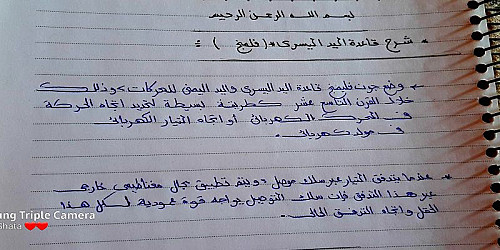 بسم الله الرحمن الرحيم
* شرح قاعدة اليد اليسرى (فلمنج) :
* وضع جون فلمنج قاعدة اليد اليسرى واليد اليمنى للحركات وذلك
خلال القرن التاسع عشر كطريقة بسيطة لتحديد اتجاه الحركة
في المحرك الكهربائي أو اتجاه التيار الكهربائي
في مولد كهربائي.
* عندما يتدفق التيار عبر سلك موصل ويتم تطبيق مجال مغناطيسي خارجي
عبر هذا التدفق فإن سلك التوصيل يواجه قوة عمودية لكل هذا
المجال واتجاه التدفق الحالي.
ung Triple Camera
Ghata